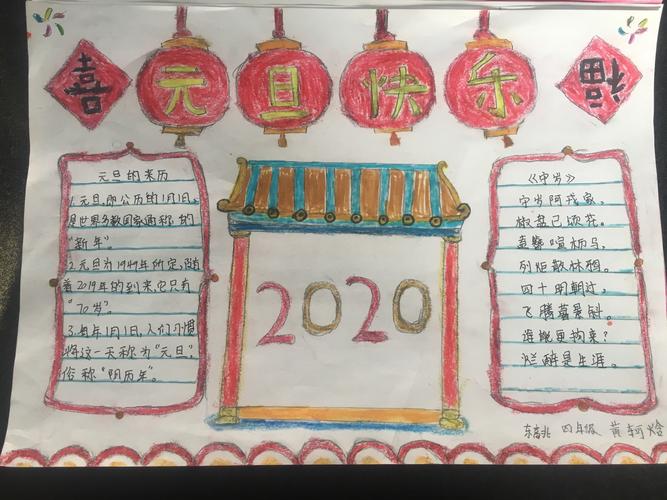 喜 元旦快乐 福
元旦的来历
1.元旦,即公历的1月1日,
是世界多数国家通称的
"新年"。
2.元旦为1949年所定,随
着2019年的到来,它只有
"70岁"。
3.每年1月1日,人们习惯
将这一天称为"元旦",
俗称"阴历年"。
2020
《守岁》
守岁阿戎家,
椒盘已颂花。
盍簪喧枥马,
列炬散林鸦。
四十明朝过,
飞腾暮景斜。
谁能更拘束?
烂醉是生涯。
四年级 黄轲